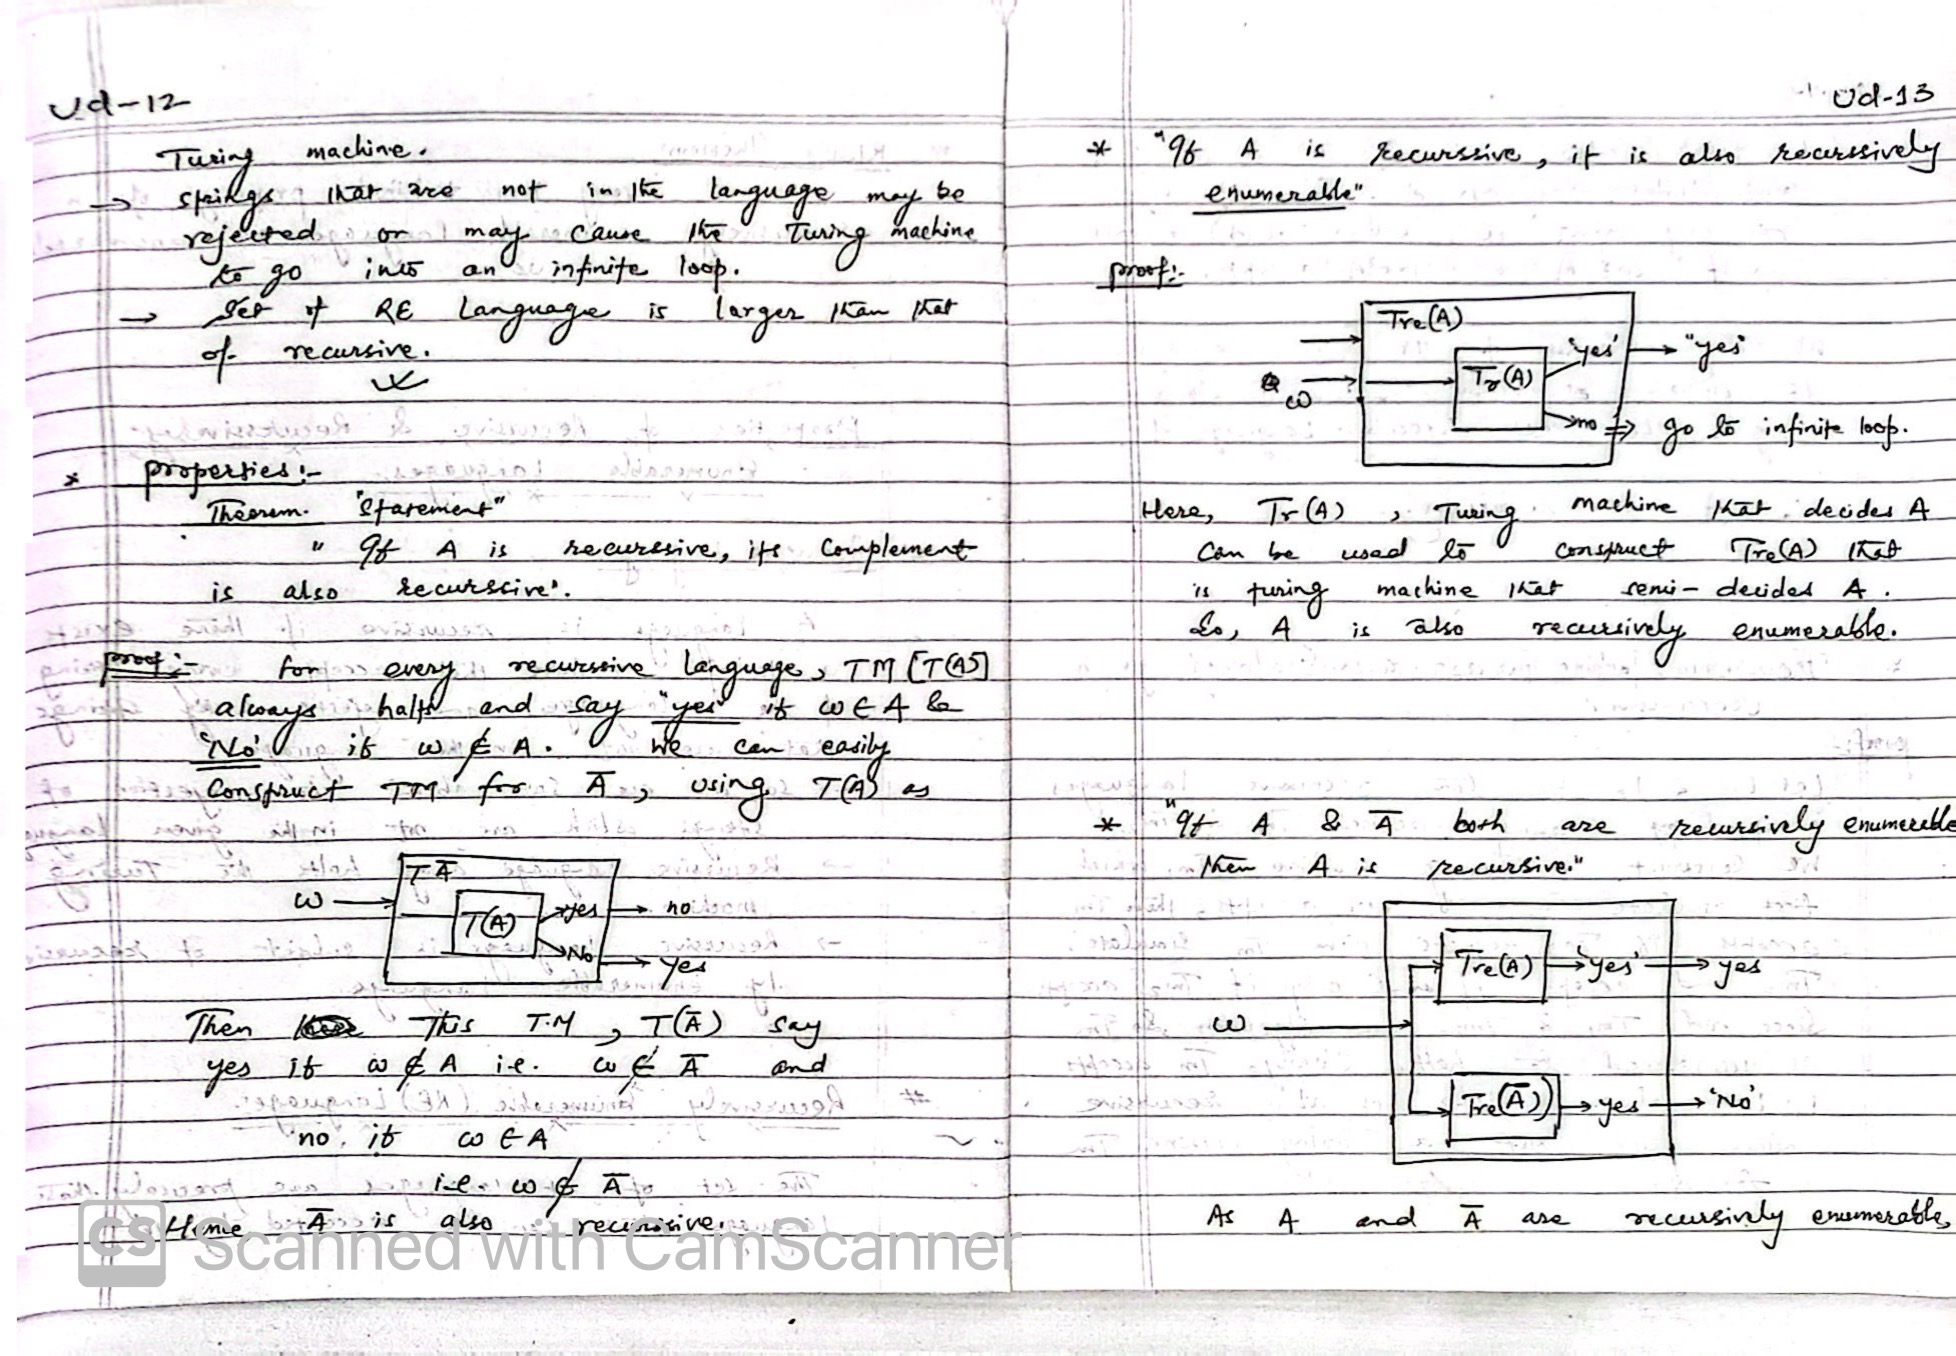 Ud-12
Turing machine.
→ strings that are not in the language may be
rejected or may cause the Turing machine
to go into an infinite loop.
→ Set of RE Language is larger than that
of recursive.
* properties:-
Theorem. "Statement"
" If A is recurssive, its Complement
is also recurssive".
proof:- for every recurssive language, TM [T(A)]
always halts and say "yes" if ω ∈ A &
'No' if ω ∉ A. We can easily
Construct TM for Ā, using T(A) as
T Ā
ω T(A) yes → no
No → yes
Then This T.M, T(Ā) say
yes if ω ∉ A i.e. ω ∉ Ā and
no. if ω ∈ A
i.e. ω ∉ Ā
Hence Ā is also recursive.
CS Scanned with CamScanner
Ud-13
* "If A is recurssive, it is also recurssively
enumerable"
proof:-
Tre(A)
ω → Tr(A) 'yes' → "yes"
no ⇒ go to infinite loop.
Here, Tr(A), Turing machine that decides A
Can be used to construct Tre(A) that
is turing machine that semi-decides A.
So, A is also recursively enumerable.
* "If A & Ā both are recursively enumerable
then A is recursive."
Tre(A) → 'yes' → yes
ω
Tre(Ā)) → yes → 'No'
As A and Ā are recursively enumerable,